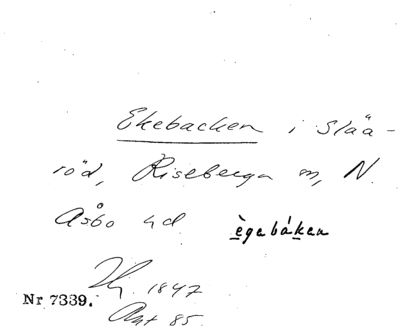 Ekebacken i Slää-
röd, Riseberga sn, N.
Åsbo hd ègebákan
1847
Nr 7339.
Akt 85.